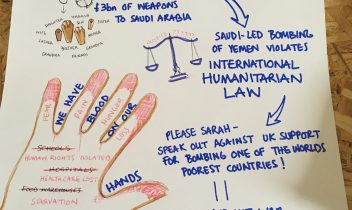 $3bn OF WEAPONS
TO SAUDI ARABIA
SISTER
FATHER
BROTHER
GRANDMA
SAUDI-LED BOMBING
OF YEMEN VIOLATES
INTERNATIONAL
HUMANITARIAN
LAW
FEAR
WE HAVE
PAIN
BLOOD
HUNGER
ON OUR
LOSS
HANDS
SCHOOLS
HUMAN RIGHTS VIOLATED
HOSPITALS
HEALTHCARE LOST
FOOD WAREHOUSES
STARVATION
PLEASE SARAH-
SPEAK OUT AGAINST UK SUPPORT
FOR BOMBING ONE OF THE WORLDS
POOREST COUNTRIES!